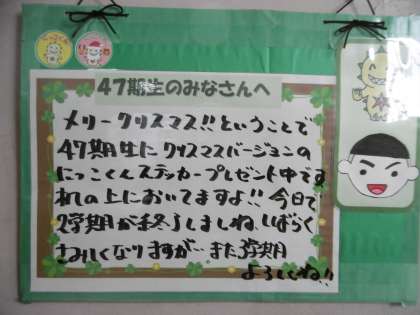 47期生のみなさんへ
メリークリスマス!!ということで
47期生にクリスマスバージョンの
にっこくんステッカープレゼント中です
机の上においてますよ!!今日で
2学期が終了しましね、しばらく
さみしくなりますが…また3学期
よろしくね!!